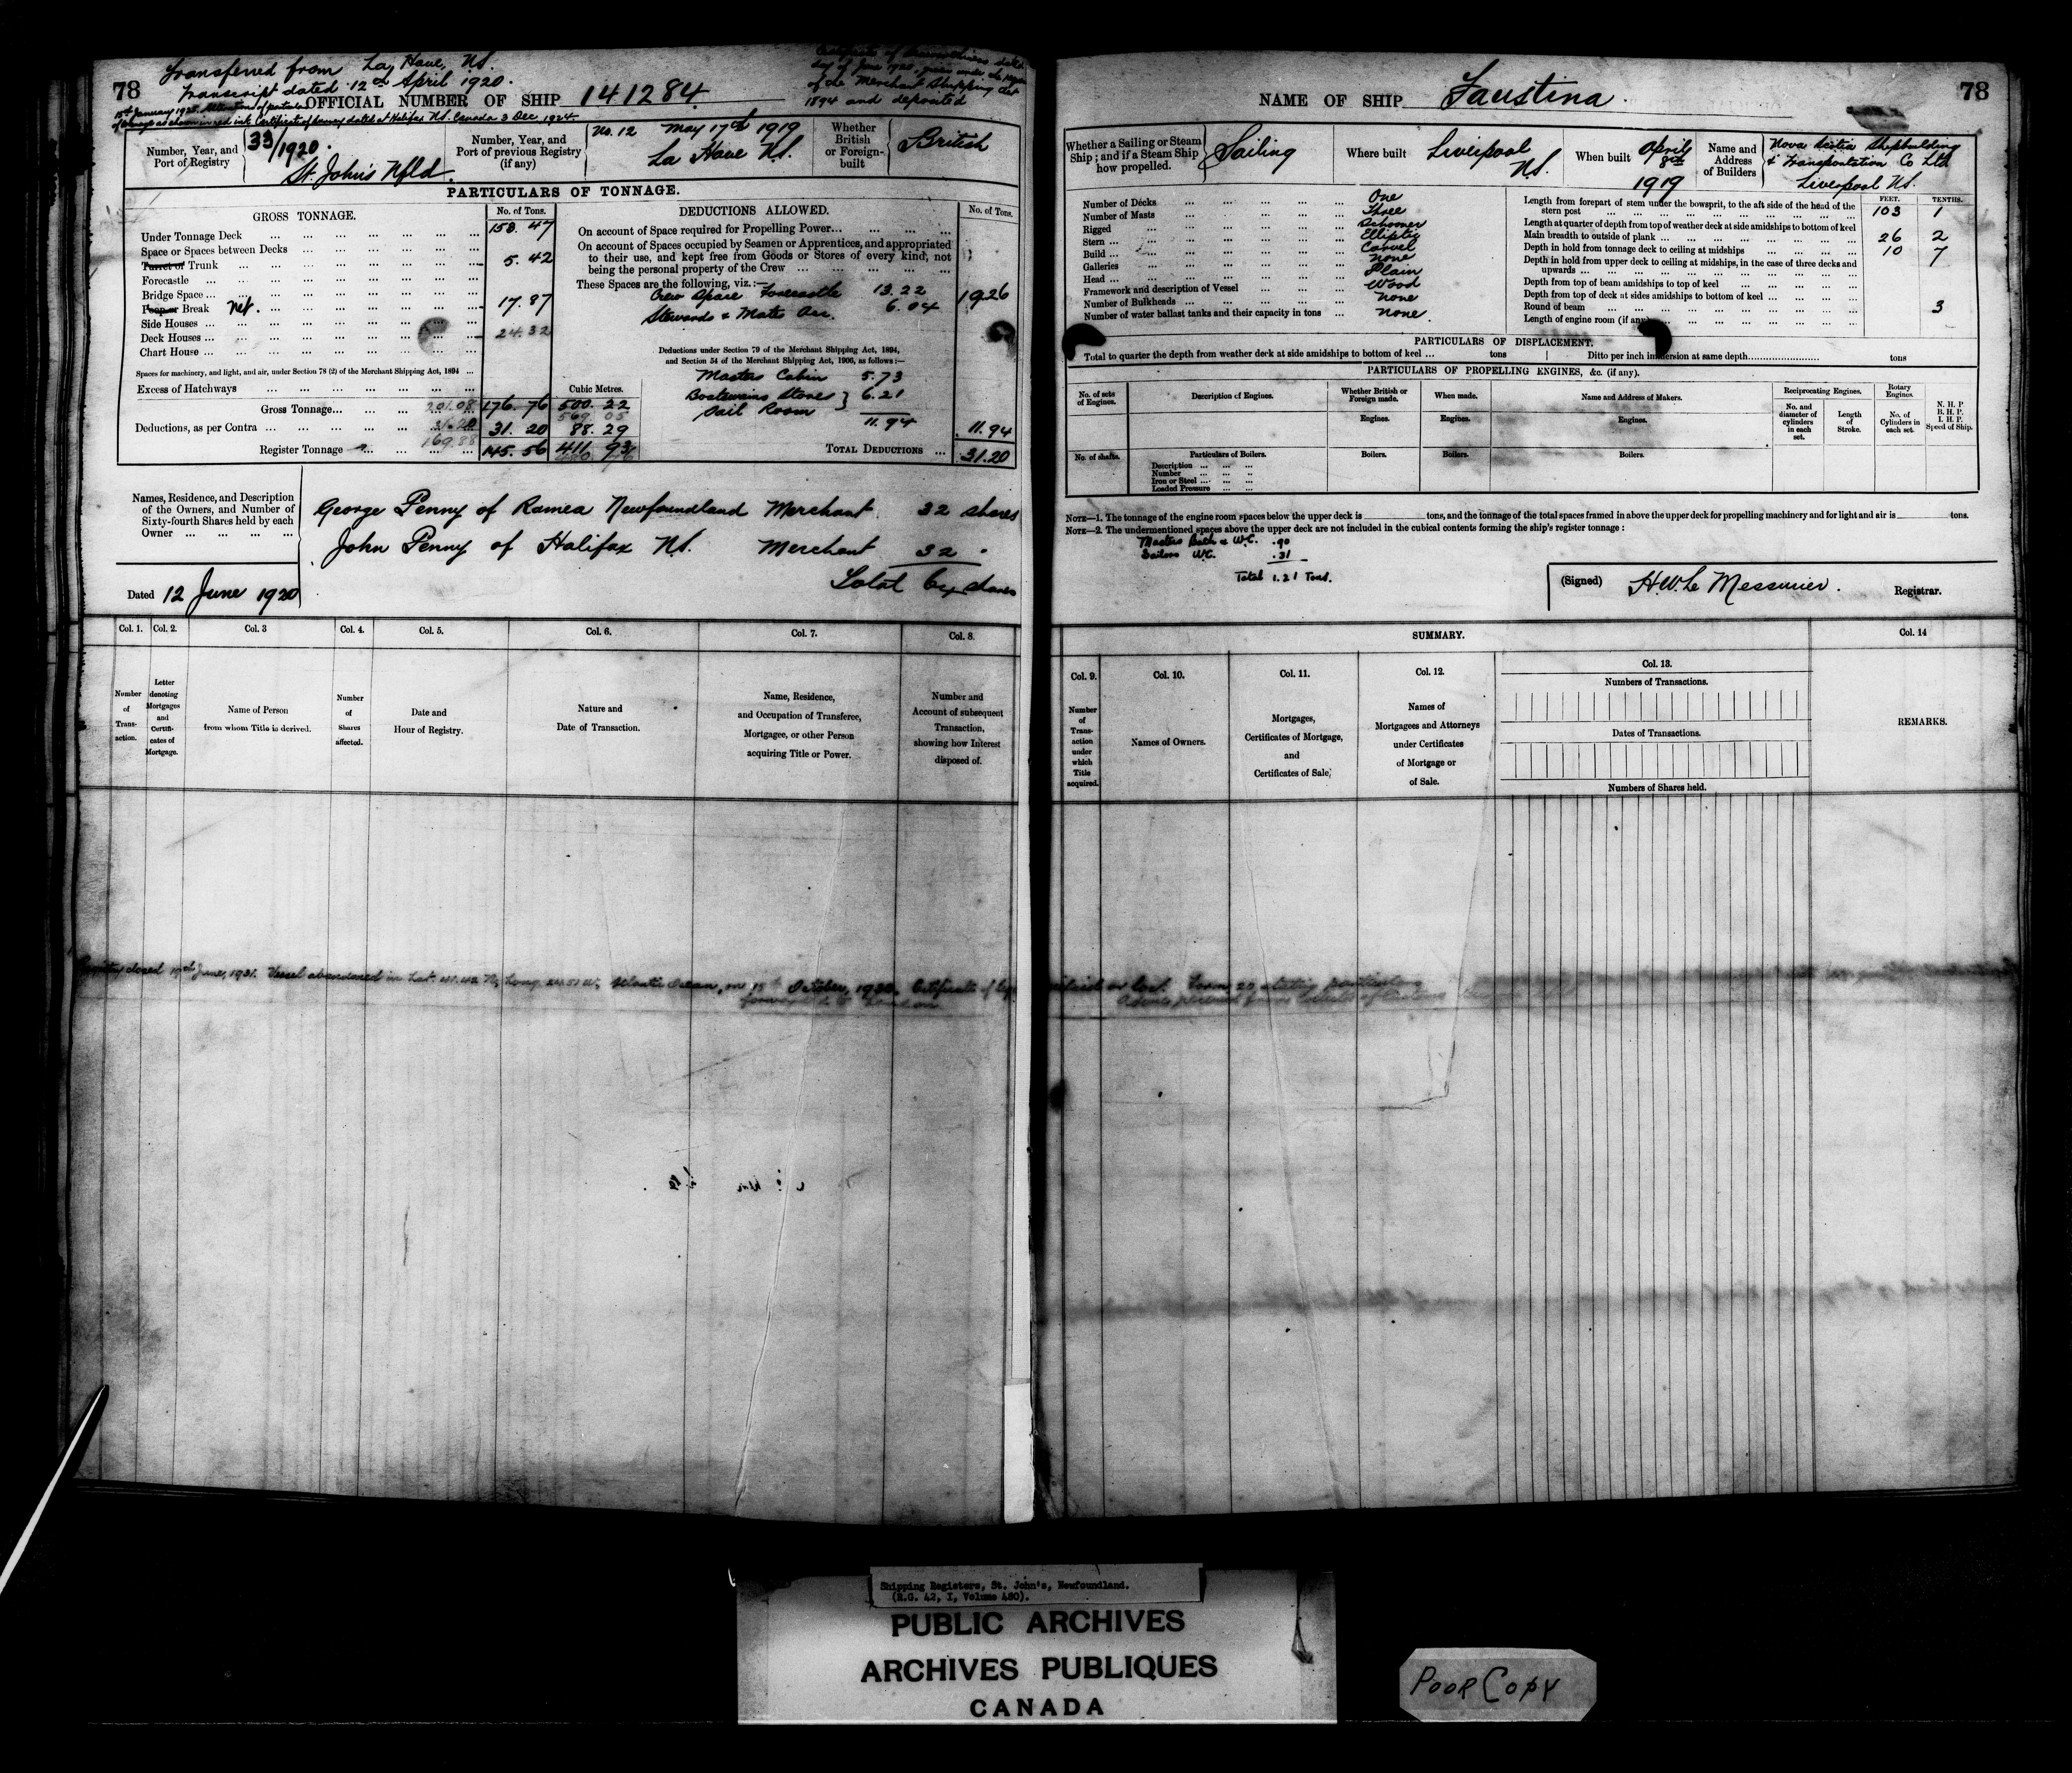 78
Transferred from La Have, NS.
Transcript dated 12th April 1920.
15th January 1925. Alteration of
dated at Halifax NS. Canada 3 Dec. 1924
day of June 1920, given under
of the Merchant Shipping Act
1894 and deposited
OFFICIAL NUMBER OF SHIP 141284
Number, Year, and Port of Registry 33/1920. St. John's Nfld.
Number, Year, and Port of previous Registry (if any) No. 12 May 17th 1919 La Have NS.
Whether British or Foreign-built British
PARTICULARS OF TONNAGE.
GROSS TONNAGE. No. of Tons.
Under Tonnage Deck 158.47
Space or Spaces between Decks
Turret or Trunk 5.42
Forecastle
Bridge Space
Poop or Break net. 17.87
Side Houses
Deck Houses 24.32
Chart House
Spaces for machinery, and light, and air, under Section 78 (2) of the Merchant Shipping Act, 1894
Excess of Hatchways Cubic Metres.
Gross Tonnage 201.08 176.76 500.22
569.05
Deductions, as per Contra 31.20 31.20 88.29
Register Tonnage 169.88 145.56 411.93
DEDUCTIONS ALLOWED. No. of Tons.
On account of Space required for Propelling Power
On account of Spaces occupied by Seamen or Apprentices, and appropriated
to their use, and kept free from Goods or Stores of every kind, not
being the personal property of the Crew
These Spaces are the following, viz.:—
Crew Space Forecastle 13.22 19.26
Stewards & Mate 6.04
Deductions under Section 79 of the Merchant Shipping Act, 1894,
and Section 54 of the Merchant Shipping Act, 1906, as follows:—
Masters Cabin 5.73
Boatswains Stores } 6.21
Sail Room
11.94 11.94
TOTAL DEDUCTIONS 31.20
Names, Residence, and Description
of the Owners, and Number of
Sixty-fourth Shares held by each
Owner
George Penny of Ramea Newfoundland Merchant 32 shares
John Penny of Halifax NS. Merchant 32 "
Total 64 shares
Dated 12 June 1920
Col. 1. Col. 2. Col. 3 Col. 4. Col. 5. Col. 6. Col. 7. Col. 8.
Number of Trans-action.
Letter denoting Mortgages and Certifi-cates of Mortgage.
Name of Person from whom Title is derived.
Number of Shares affected.
Date and Hour of Registry.
Nature and Date of Transaction.
Name, Residence, and Occupation of Transferee, Mortgagee, or other Person acquiring Title or Power.
Number and Account of subsequent Transaction, showing how Interest disposed of.
closed June, 1931. Vessel abandoned in Lat. Long. Atlantic Ocean, on 15th October, 1930. Certificate of
NAME OF SHIP Faustina 78
Whether a Sailing or Steam Ship; and if a Steam Ship how propelled. Sailing
Where built Liverpool NS.
When built April 8th 1919
Name and Address of Builders Nova Scotia Shipbuilding & Transportation Co Ltd Liverpool NS.
Number of Decks One
Number of Masts Three
Rigged Schooner
Stern Elliptic
Build Carvel
Galleries None
Head Plain
Framework and description of Vessel Wood
Number of Bulkheads None
Number of water ballast tanks and their capacity in tons None.
FEET. TENTHS.
Length from forepart of stem under the bowsprit, to the aft side of the head of the stern post 103 1
Length at quarter of depth from top of weather deck at side amidships to bottom of keel
Main breadth to outside of plank 26 2
Depth in hold from tonnage deck to ceiling at midships 10 7
Depth in hold from upper deck to ceiling at midships, in the case of three decks and upwards
Depth from top of beam amidships to top of keel
Depth from top of deck at sides amidships to bottom of keel
Round of beam 3
Length of engine room (if any)
PARTICULARS OF DISPLACEMENT.
Total to quarter the depth from weather deck at side amidships to bottom of keel tons Ditto per inch immersion at same depth tons
PARTICULARS OF PROPELLING ENGINES, &c. (if any).
No. of sets of Engines.
Description of Engines.
Whether British or Foreign made.
When made.
Name and Address of Makers.
Reciprocating Engines.
Rotary Engines.
Engines. Engines. Engines.
No. and diameter of cylinders in each set.
Length of Stroke.
No. of Cylinders in each set.
N. H. P. B. H. P. I. H. P. Speed of Ship.
No. of shafts.
Particulars of Boilers. Boilers. Boilers. Boilers.
Description
Number
Iron or Steel
Loaded Pressure
NOTE—1. The tonnage of the engine room spaces below the upper deck is tons, and the tonnage of the total spaces framed in above the upper deck for propelling machinery and for light and air is tons.
NOTE—2. The undermentioned spaces above the upper deck are not included in the cubical contents forming the ship's register tonnage:
Masters Bath & W.C. .90
Sailors W.C. .31
Total 1.21 Tons.
(Signed) H.W. Le Messurier. Registrar.
SUMMARY. Col. 14
Col. 9. Col. 10. Col. 11. Col. 12. Col. 13.
Number of Trans-action under which Title acquired.
Names of Owners.
Mortgages, Certificates of Mortgage, and Certificates of Sale,
Names of Mortgagees and Attorneys under Certificates of Mortgage or of Sale.
Numbers of Transactions.
Dates of Transactions.
Numbers of Shares held.
REMARKS.
Shipping Registers, St. John's, Newfoundland.
(R.G. 42, I, Volume 480).
PUBLIC ARCHIVES
ARCHIVES PUBLIQUES
CANADA
POOR COPY